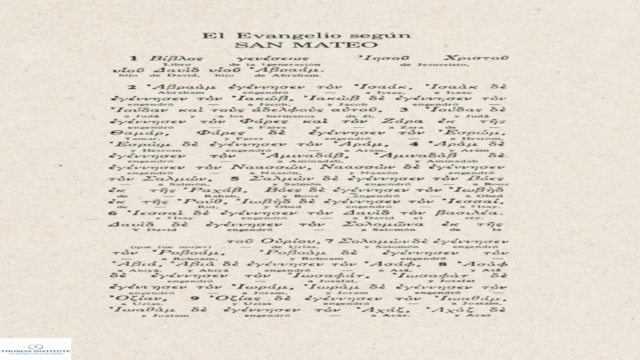 El Evangelio según
SAN MATEO
1 Βίβλος γενέσεως Ἰησοῦ Χριστοῦ
Libro de la generación de Jesucristo,
υἱοῦ Δαυὶδ υἱοῦ Ἀβραάμ.
hijo de David, hijo de Abraham.
2 Ἀβραὰμ ἐγέννησεν τὸν Ἰσαάκ, Ἰσαὰκ δὲ
Abraham engendró — a Isaac, y Isaac
ἐγέννησεν τὸν Ἰακώβ, Ἰακὼβ δὲ ἐγέννησεν τὸν
engendró — a Jacob, y Jacob engendró —
Ἰούδαν καὶ τοὺς ἀδελφοὺς αὐτοῦ, 3 Ἰούδας δὲ
a Judá y a los hermanos de él, y Judá
ἐγέννησεν τὸν Φάρες καὶ τὸν Ζάρα ἐκ τῆς
engendró — a Fares y — a Zara de —
Θαμάρ, Φάρες δὲ ἐγέννησεν τὸν Ἐσρώμ,
Tamar, y Fares engendró — a Hesrom,
Ἐσρὼμ δὲ ἐγέννησεν τὸν Ἀράμ, 4 Ἀρὰμ δὲ
y Hesrom engendró — a Aram, y Arám
ἐγέννησεν τὸν Ἀμιναδάβ, Ἀμιναδὰβ δὲ
engendró — a Aminadab, y Aminadab
ἐγέννησεν τὸν Ναασσών, Ναασσὼν δὲ ἐγέννησεν
engendró — a Naasón, y Naasón engendró
τὸν Σαλμών, 5 Σαλμὼν δὲ ἐγέννησεν τὸν Βόες
— a Salmón, y Salmón engendró — a Booz
ἐκ τῆς Ῥαχάβ, Βόες δὲ ἐγέννησεν τὸν Ἰωβὴδ
de — Rahab, y Booz engendró — a Obed
ἐκ τῆς Ῥούθ, Ἰωβὴδ δὲ ἐγέννησεν τὸν Ἰεσσαί,
de — Rut, y Obed engendró — a Isay,
6 Ἰεσσαὶ δὲ ἐγέννησεν τὸν Δαυὶδ τὸν βασιλέα.
y Isay engendró — a David el rey.
Δαυὶδ δὲ ἐγέννησεν τὸν Σολομῶνα ἐκ τῆς
Y David engendró — a Salomón de la
τοῦ Οὐρίου, 7 Σολομὼν δὲ ἐγέννησεν
(que fue mujer) — de Urías, y Salomón engendró
τὸν Ῥοβοάμ, Ῥοβοὰμ δὲ ἐγέννησεν τὸν
— a Roboam, y Roboam engendró —
Ἀβιά, Ἀβιὰ δὲ ἐγέννησεν τὸν Ἀσάφ, 8 Ἀσὰφ
a Abiyá, y Abiyá engendró — a Asá, y Asá
δὲ ἐγέννησεν τὸν Ἰωσαφάτ, Ἰωσαφὰτ δὲ
engendró — a Josafat, y Josafat
ἐγέννησεν τὸν Ἰωράμ, Ἰωρὰμ δὲ ἐγέννησεν τὸν
engendró — a Joram, y Joram engendró —
Ὀζίαν, 9 Ὀζίας δὲ ἐγέννησεν τὸν Ἰωαθάμ,
a Uzías, y Uzías engendró — a Jotam,
Ἰωαθὰμ δὲ ἐγέννησεν τὸν Ἀχάζ, Ἀχὰζ δὲ
y Jotam engendró — a Acaz, y Acaz
THOMAS INSTITUTE